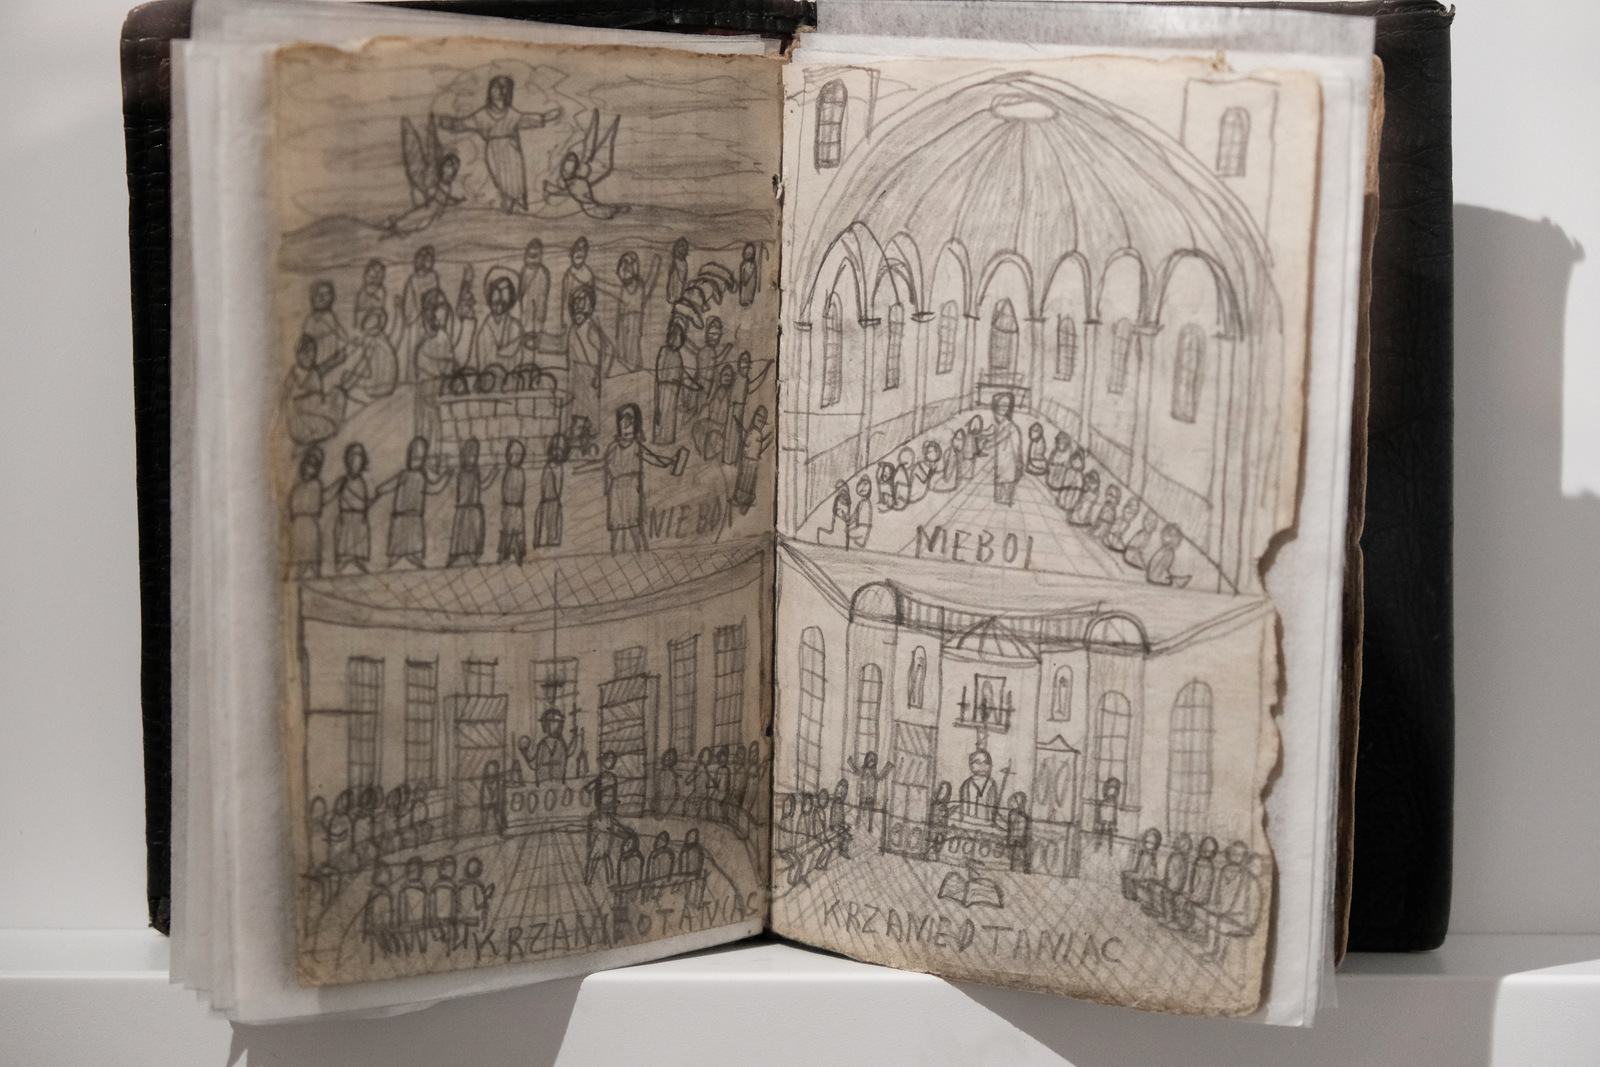 NIEBOI
KRZANIEOTANIAC
NIEBOI
KRZANIEDTANIAC